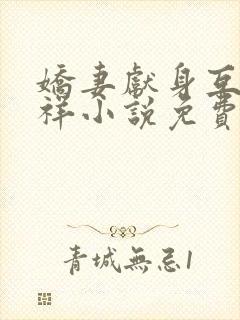 嬌妻獻身互
祥小說免費
青城無忌1